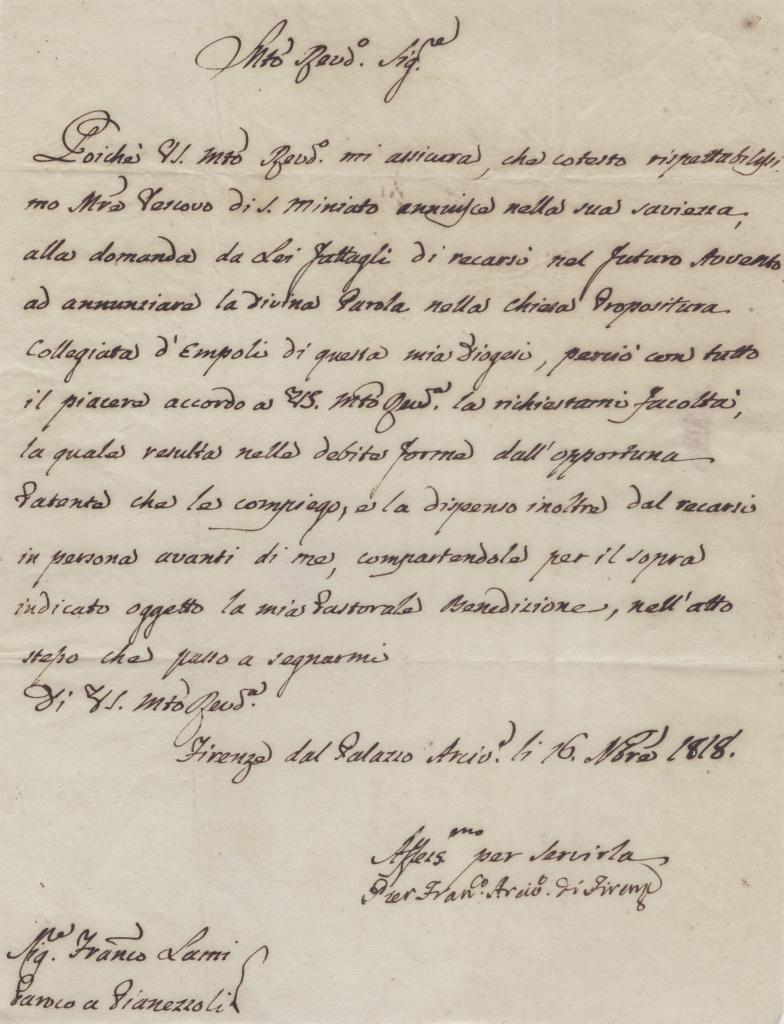 Mto Revdo. Sigre
Poichè VS. Mto Revdo. mi assicura, che cotesto rispettabilissi:
mo Mre Vescovo di S. Miniato annuisce nella sua saviezza,
alla domanda da Lei fattagli di recarsi nel futuro Avvento
ad annunziare la Divina Parola nella Chiesa Propositura
Collegiata d'Empoli di questa mia Diogesi, perciò con tutto
il piacere accordo a VS. Mto Revda. la richiestami facoltà,
la quale resulta nelle debite forme dall'opportuna
Patente che le compiego, e la dispenso inoltre dal recarsi
in persona avanti di me, compartendole per il sopra
indicato oggetto la mia Pastorale Benedizione, nell'atto
stesso che passo a segnarmi
Di VS. Mto Revda.
Firenze dal Palazzo Arcivo. li 16. Nbre 1818.
Affezmo per servirla
Pier Franco. Arcivo. di Firenze
Sigre. Franco Lami
Paroco a Pianezzoli